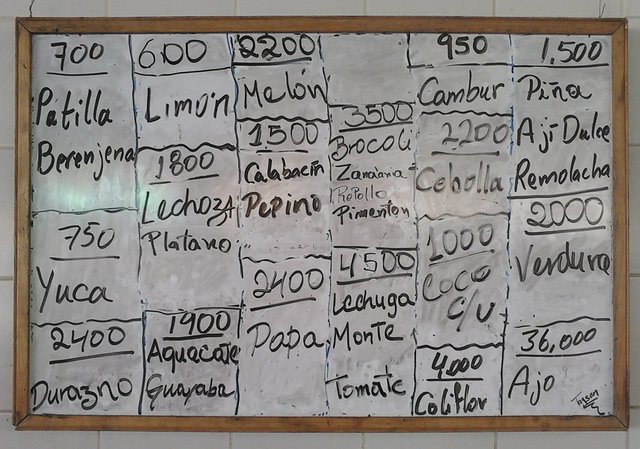 700
Patilla
Berenjena
750
Yuca
2400
Durazno
600
Limón
1800
Lechoza
Platano
1900
Aguacate
Guayaba
2200
Melón
1500
Calabacín
Pepino
2400
Papa
3500
Brocoli
Zanaoria
Repollo
Pimenton
4500
Lechuga
Monte
Tomate
950
Cambur
2200
Cebolla
1000
Coco
c/u
4.000
Coliflor
1,500
Piña
Ají Dulce
Remolacha
2000
Verdura
36,000
Ajo